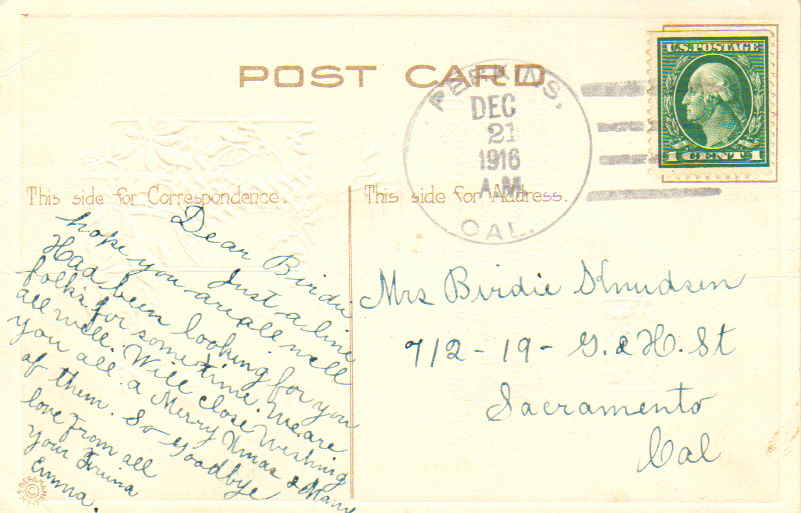 POST CARD
U.S. POSTAGE
1 CENT 1
PERKINS,
DEC
21
1916
A.M.
CAL.
This side for Correspondence.
This side for Address.
Dear Birdie
Just a line
hope you are all well
Had been looking for you
folks for sometime. We are
all well. Will close Wishing
you all a Merry Xmas & Many
of them. So goodbye
love from all
Your Friend
Emma.
Mrs Birdie Knudsen
712-19- G. & H. St
Sacramento
Cal